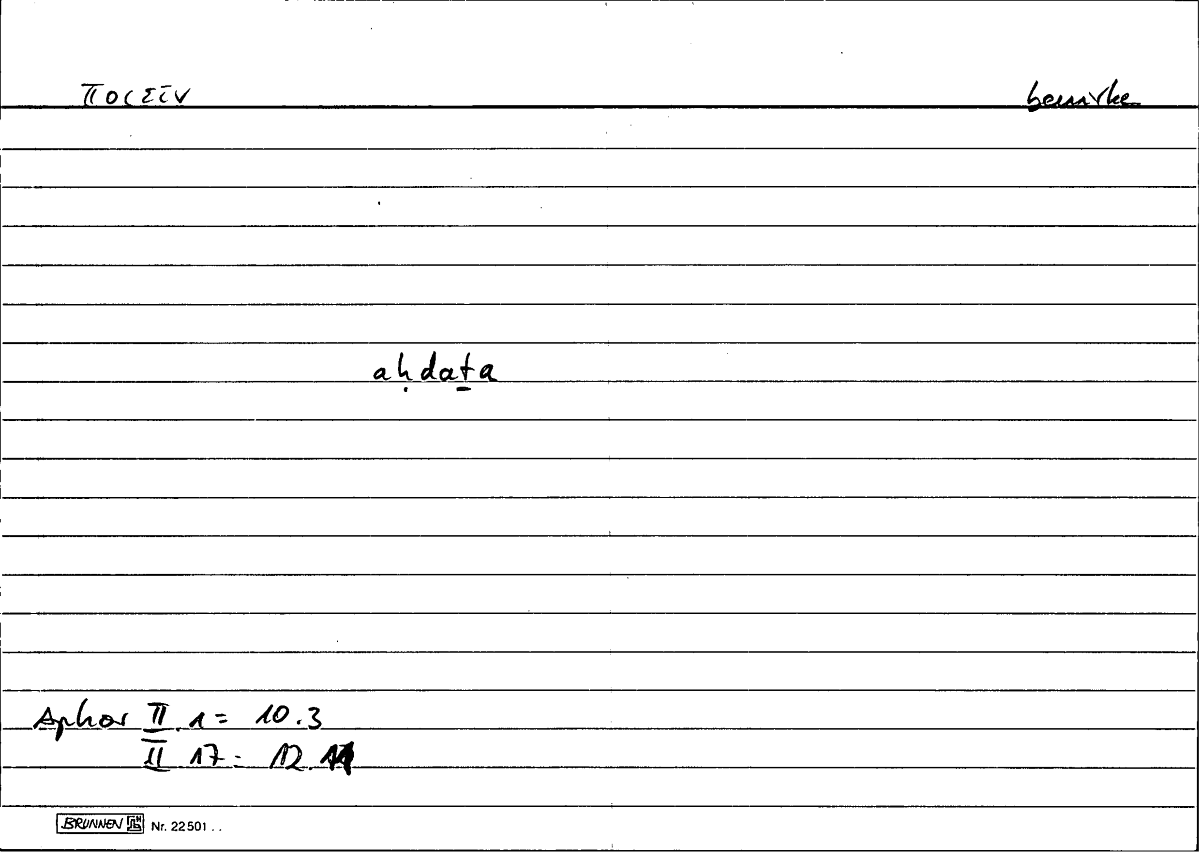 ποιεῖν bewirke
aḥdaṯa
Aphor II. 1 = 10.3
II 17 = 12.
BRUNNEN Nr. 22501 . .